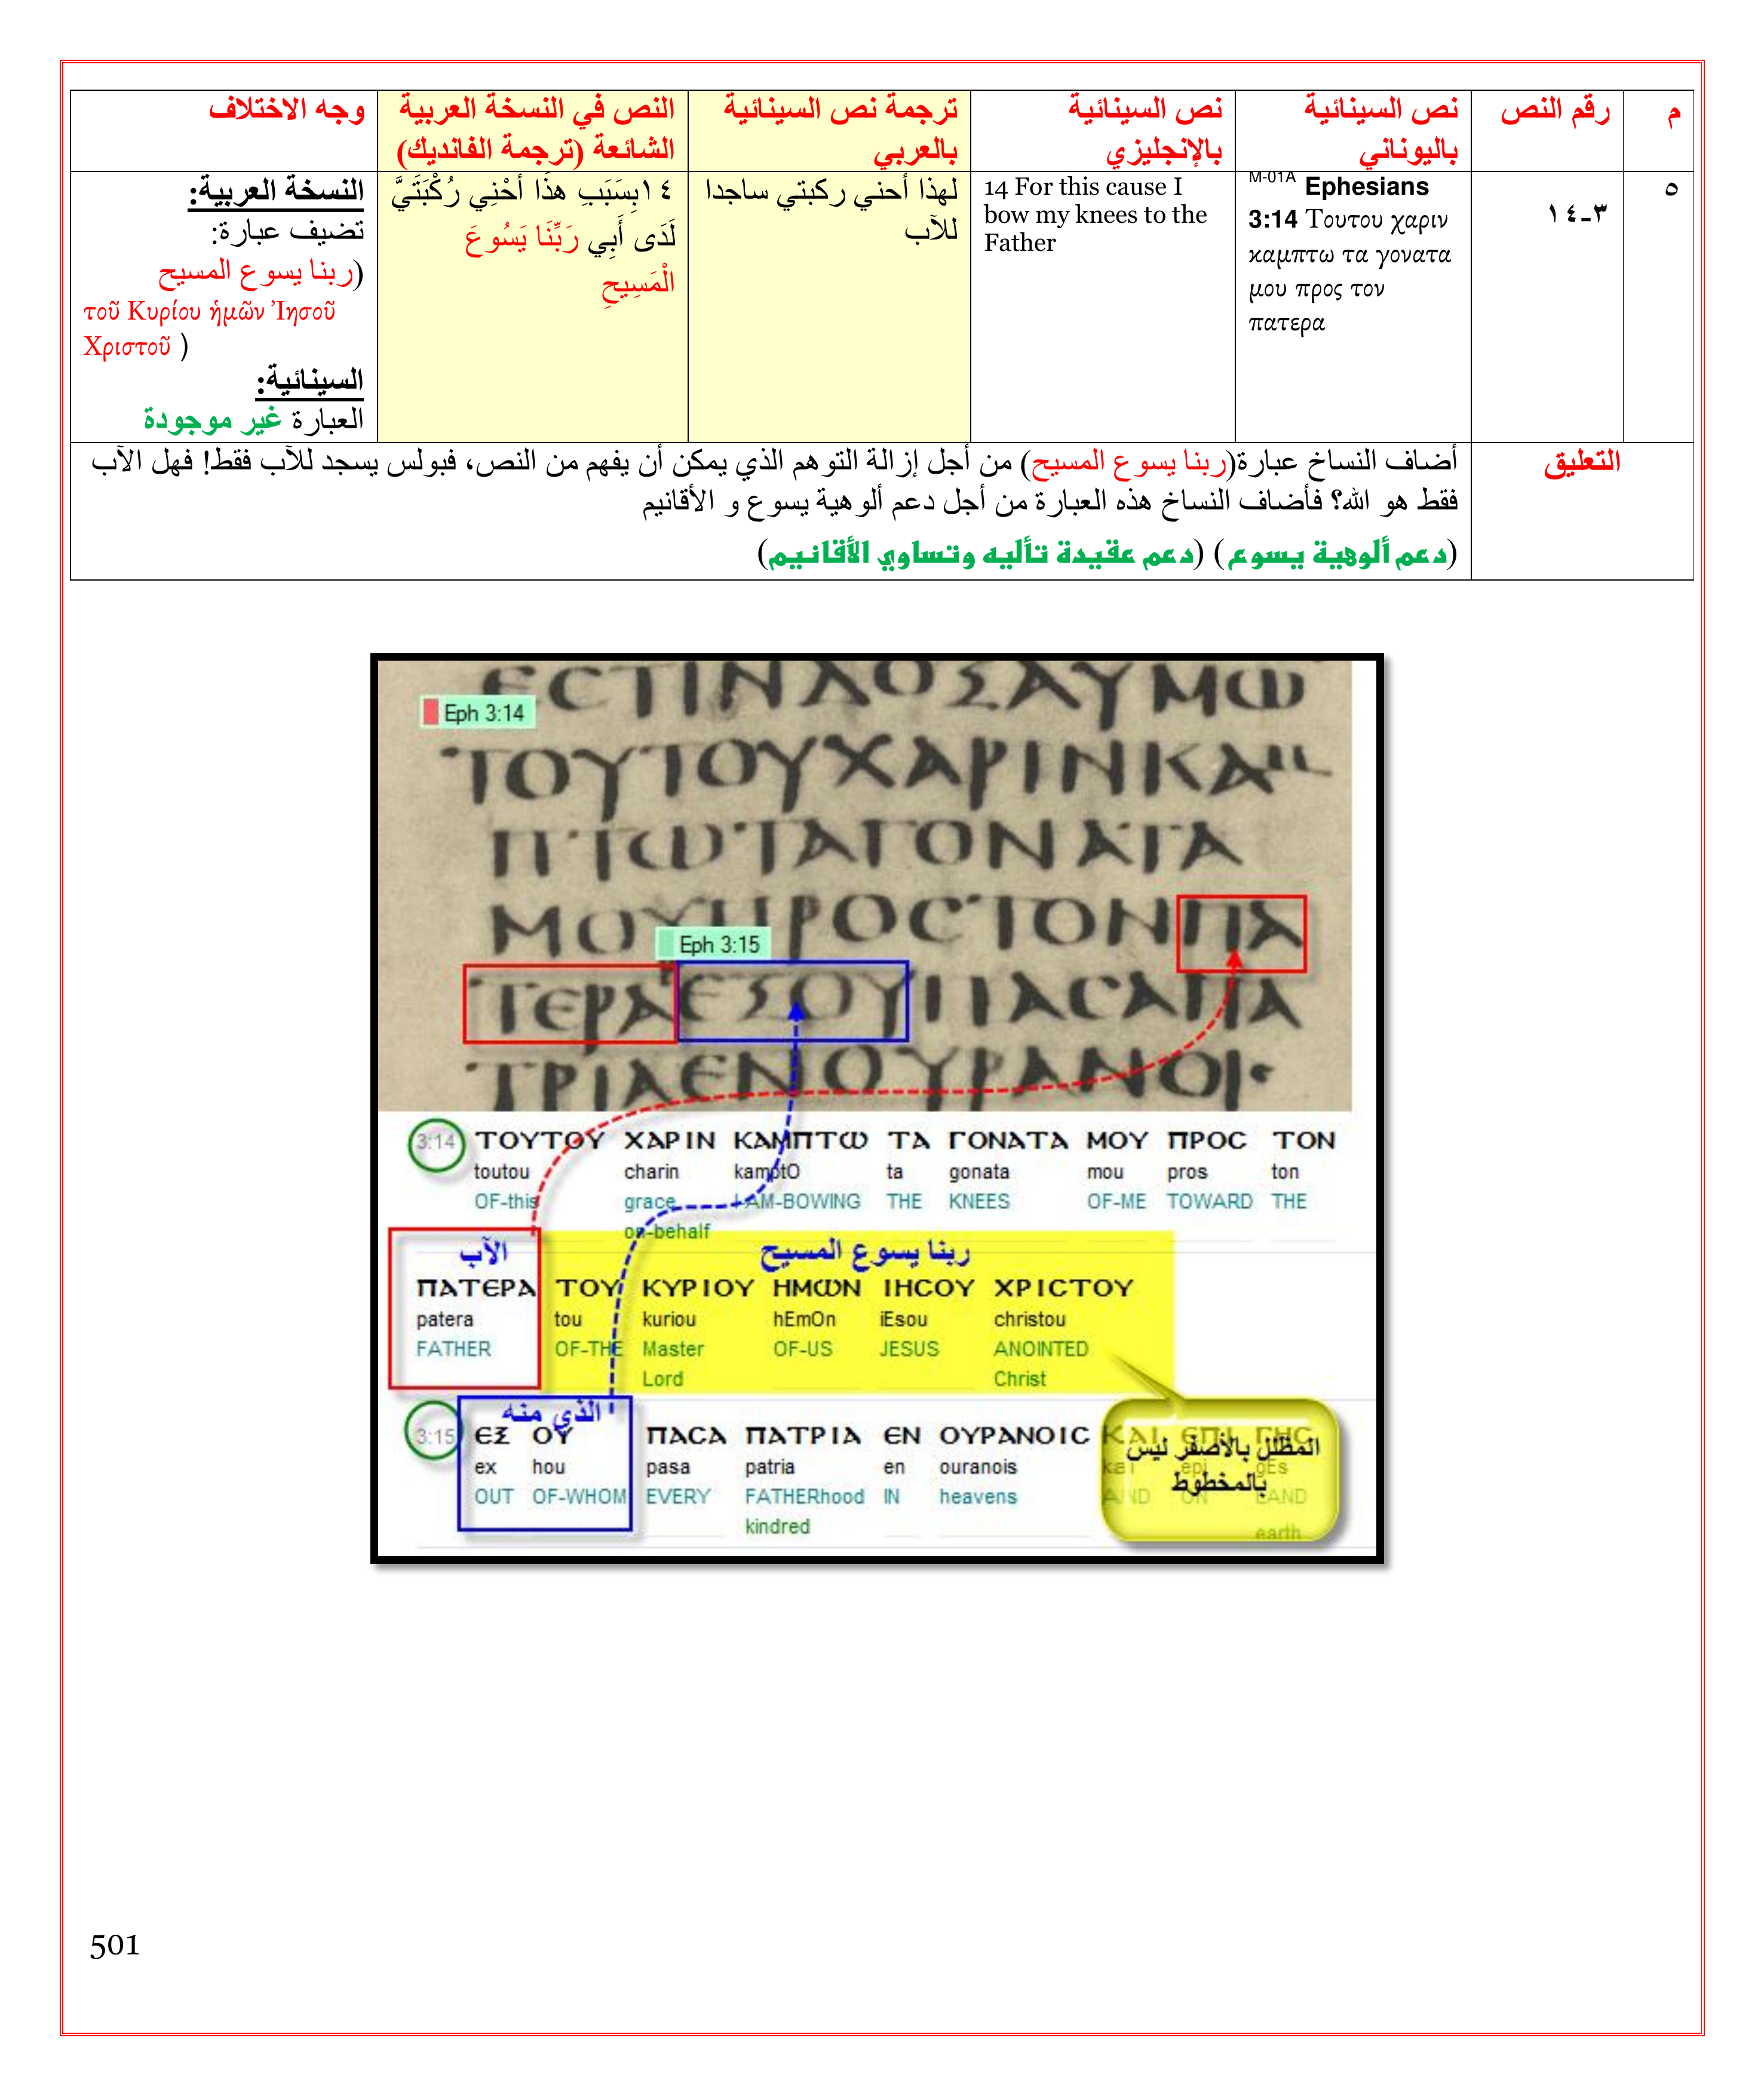 م
رقم النص
نص السينائية
باليوناني
نص السينائية
بالإنجليزي
ترجمة نص السينائية
بالعربي
النص في النسخة العربية
الشائعة (ترجمة الفانديك)
وجه الاختلاف
٥
٣-١٤
M-01A Ephesians
3:14 Τουτου χαριν
καμπτω τα γονατα
μου προς τον
πατερα
14 For this cause I
bow my knees to the
Father
لهذا أحني ركبتي ساجدا
للآب
١٤بِسَبَبِ هذَا أَحْنِي رُكْبَتَيَّ
لَدَى أَبِي رَبِّنَا يَسُوعَ
الْمَسِيحِ
النسخة العربية:
تضيف عبارة:
(ربنا يسوع المسيح
τοῦ Κυρίου ἡμῶν Ἰησοῦ
Χριστοῦ )
السينائية:
العبارة غير موجودة
التعليق
أضاف النساخ عبارة(ربنا يسوع المسيح) من أجل إزالة التوهم الذي يمكن أن يفهم من النص، فبولس يسجد للآب فقط! فهل الآب
فقط هو الله؟ فأضاف النساخ هذه العبارة من أجل دعم ألوهية يسوع و الأقانيم
(دعم ألوهية يسوع) (دعم عقيدة تأليه وتساوي الأقانيم)
ΕCΤΙΝΔΟΞΑΥΜΩ
Eph 3:14
ΤΟΥΤΟΥΧΑΡΙΝΚΑΜ
ΠΤΩΤΑΓΟΝΑΤΑ
ΜΟΥΠΡΟCΤΟΝΠΑ
Eph 3:15
ΤΕΡΑΕΞΟΥΠΑCΑΠΑ
ΤΡΙΑΕΝΟΥΡΑΝΟΙC
3:14 ΤΟΥΤΟΥ ΧΑΡΙΝ ΚΑΜΠΤΩ ΤΑ ΓΟΝΑΤΑ ΜΟΥ ΠΡΟC ΤΟΝ
toutou charin kamptO ta gonata mou pros ton
OF-this grace I-AM-BOWING THE KNEES OF-ME TOWARD THE
on-behalf
الآب ربنا يسوع المسيح
ΠΑΤΕΡΑ ΤΟΥ ΚΥΡΙΟΥ ΗΜΩΝ ΙΗCΟΥ ΧΡΙCΤΟΥ
patera tou kuriou hEmOn iEsou christou
FATHER OF-THE Master OF-US JESUS ANOINTED
Lord Christ
الذي منه
3:15 ΕΞ ΟΥ ΠΑCΑ ΠΑΤΡΙΑ ΕΝ ΟΥΡΑΝΟΙC ΚΑΙ ΕΠΙ ΓΗC
ex hou pasa patria en ouranois kai epi gEs
OUT OF-WHOM EVERY FATHERhood IN heavens AND ON LAND
kindred earth
المظلل بالأصفر ليس
بالمخطوط
501